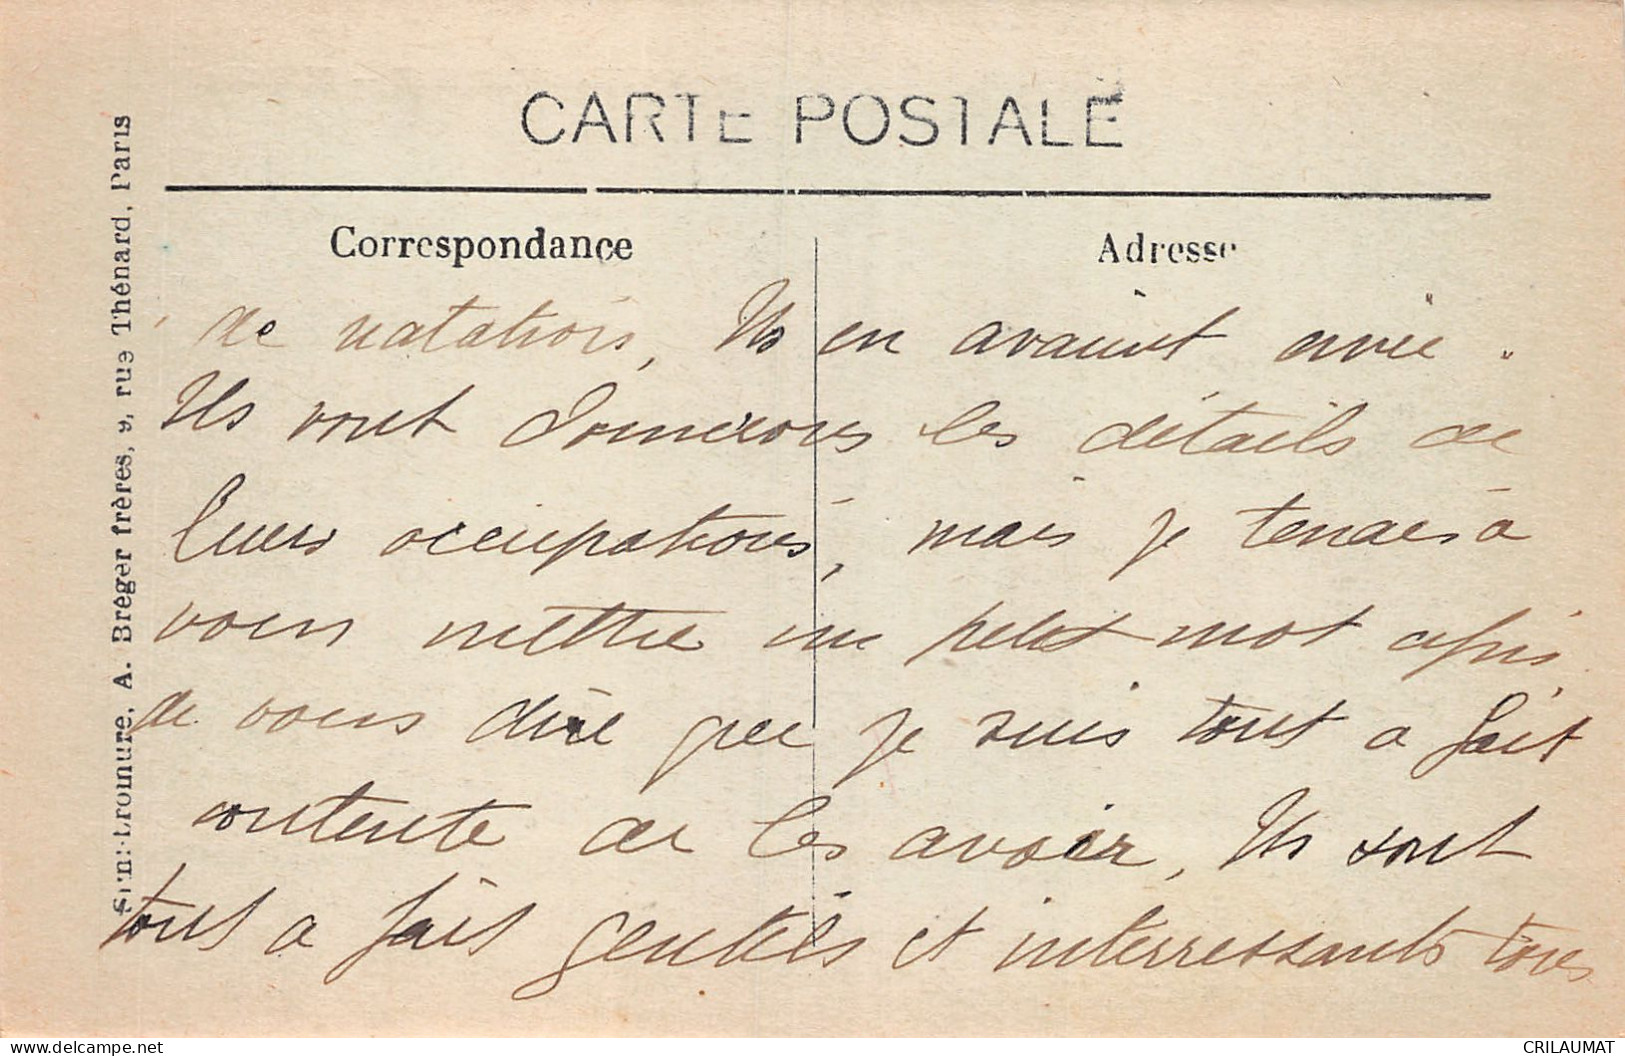 CARTE POSTALE
Correspondance
Adresse
de natation, Ils en avaient envie.
Ils vont donner les détails de
leurs occupations, mais je tenais à
vous mettre un petit mot après
de vous dire que je suis tout a fait
contente de les avoir, Ils sont
tout a fait gentils et interressants tous
A. Bréger frères, 9, rue Thénard, Paris
delcampe.net
CRILAUMAT